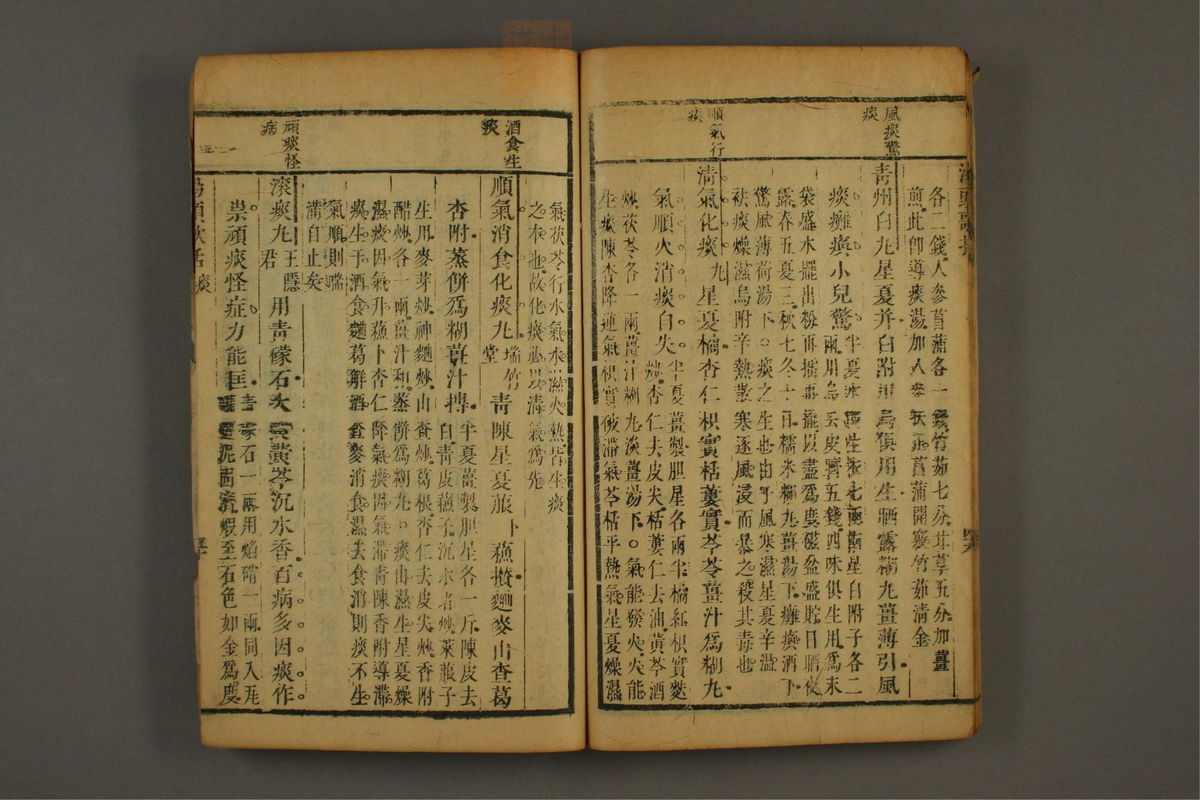 各二錢人參菖蒲各一錢竹茹七分甘草五分加薑
煎此卽導痰湯加人參菖蒲開竅竹茹清金
風痰驚
痰
青州白丸星夏并白附川烏俱用生晒露糊丸薑薄引風
痰癱瘓小兒驚
袋盛水擺出粉再擂再擺以盡爲度磁盆盛貯日晒夜
露春五夏三秋七冬十日糯米糊丸薑湯下癱瘓酒下
驚風薄荷湯下。痰之生也由于風寒濕星夏辛溫
祛痰燥濕烏附辛熱散寒逐風浸而暴之殺其毒也
順氣行
痰
清氣化痰丸星夏橘杏仁枳實栝蔞實芩苓薑汁爲糊丸
氣順火消痰自失
半夏薑製胆星各兩半橘紅枳實麩
炒杏仁去皮尖栝蔞仁去油黃芩酒
炒茯苓各一兩薑汁糊丸淡薑湯下。氣能發火火能
生痰陳杏降逆氣枳實破滯氣芩栝平熱氣星夏燥濕
氣茯苓行水氣水濕火熱皆生痰
之本也故化痰必以清氣爲先
酒食生
痰
順氣消食化痰丸
瑞竹
堂
青陳星夏菔
卜
蘓攢麯麥山查葛
杏附蒸餅爲糊薑汁摶
半夏薑製胆星各一斤陳皮去
白青皮蘓子沉水者炒萊菔子
生用麥芽炒神麯炒山查炒葛根杏仁去皮尖炒香附
醋炒各一兩薑汁和蒸餅爲糊丸。痰由濕生星夏燥
濕痰因氣升蘓卜杏仁降氣痰因氣滯青陳香附導滯
痰生于酒食麯葛解酒查麥消食濕去食消則痰不生
氣順則喘
滿自止矣
頑痰怪
病
滾痰丸
王隱
君
用青礞石大黃黃芩沉水香百病多因痰作
祟頑痰怪症力能匡
青礞石一兩用焰硝一兩同入瓦
罐鹽泥固濟煆至石色如金爲度
湯頭歌括
痰